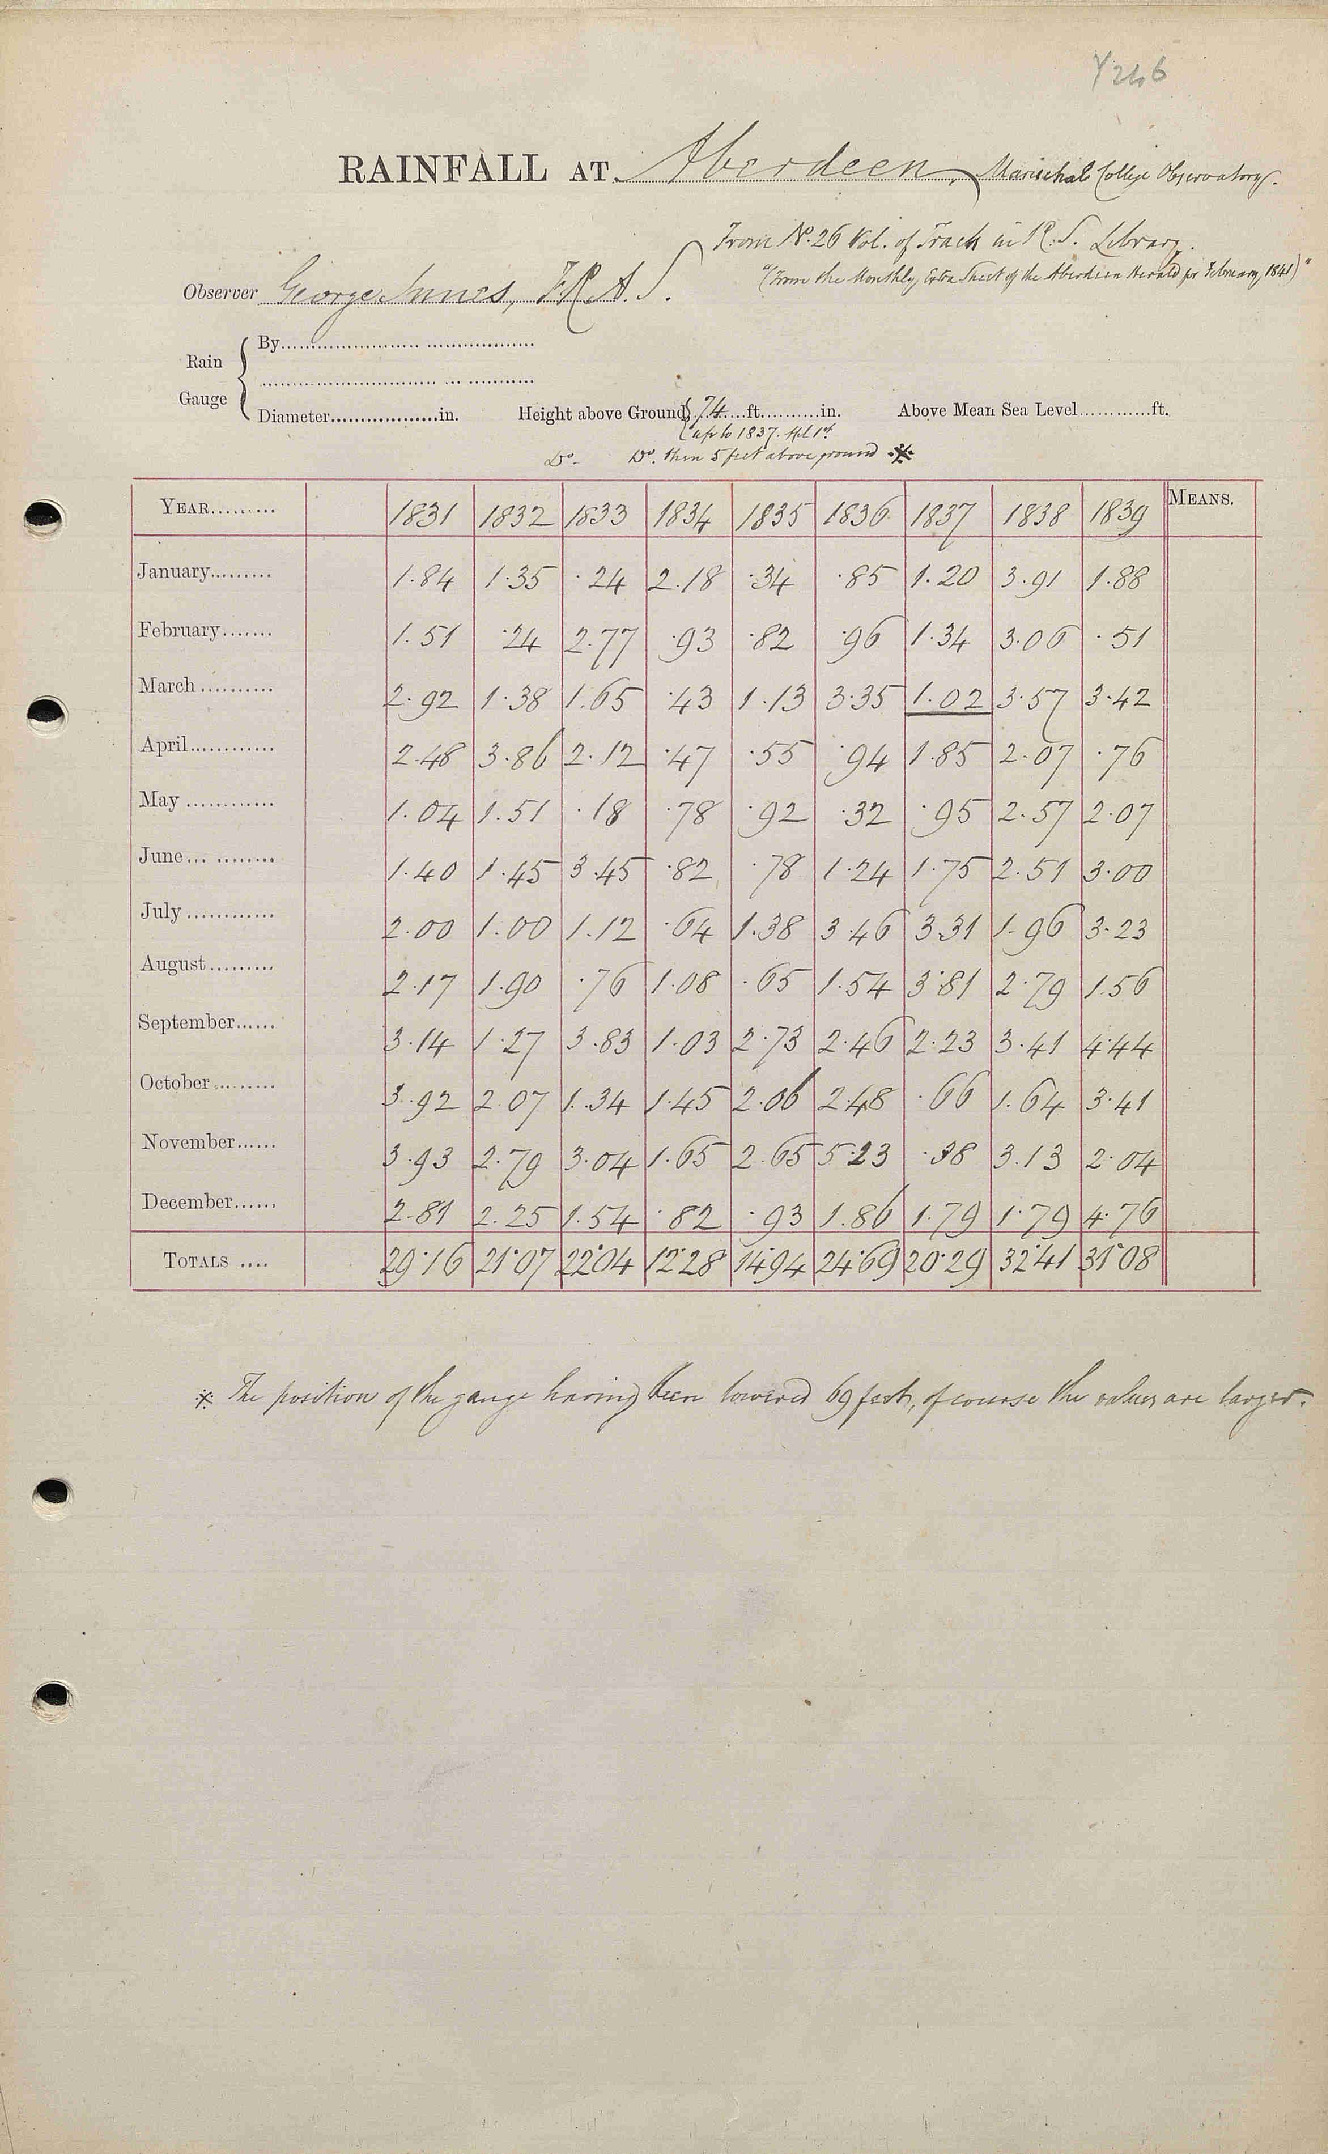 Y246
RAINFALL AT. Aberdeen, Marischal College Observatory.
From No. 26 Vol. of Tracts in R. S. Library.
"(From the Monthly Extra Sheet of the Aberdeen Herald for February, 1841)"
Observer George Innes, F.R.A.S.
Rain Gauge
By
Diameter in. Height above Ground 74 ft. in. Above Mean Sea Level ft.
up to 1837. Apl 1st
Do. Do. then 5 feet above ground *
YEAR 1831 1832 1833 1834 1835 1836 1837 1838 1839 MEANS.
January 1.84 1.35 .24 2.18 .34 .85 1.20 3.91 1.88
February 1.51 .24 2.77 .93 .82 .96 1.34 3.06 .51
March 2.92 1.38 1.65 .43 1.13 3.35 1.02 3.57 3.42
April 2.48 3.86 2.12 .47 .55 .94 1.85 2.07 .76
May 1.04 1.51 .18 .78 .92 .32 .95 2.57 2.07
June 1.40 1.45 3.45 .82 .78 1.24 1.75 2.51 3.00
July 2.00 1.00 1.12 .64 1.38 3.46 3.31 1.96 3.23
August 2.17 1.90 .76 1.08 .65 1.54 3.81 2.79 1.56
September 3.14 1.27 3.83 1.03 2.73 2.46 2.23 3.41 4.44
October 3.92 2.07 1.34 1.45 2.06 2.48 .66 1.64 3.41
November 3.93 2.79 3.04 1.65 2.65 5.23 .38 3.13 2.04
December 2.81 2.25 1.54 .82 .93 1.86 1.79 1.79 4.76
TOTALS 29.16 21.07 22.04 12.28 14.94 24.69 20.29 32.41 31.08
* The position of the gauge having been lowered 69 feet, of course the values are larger.